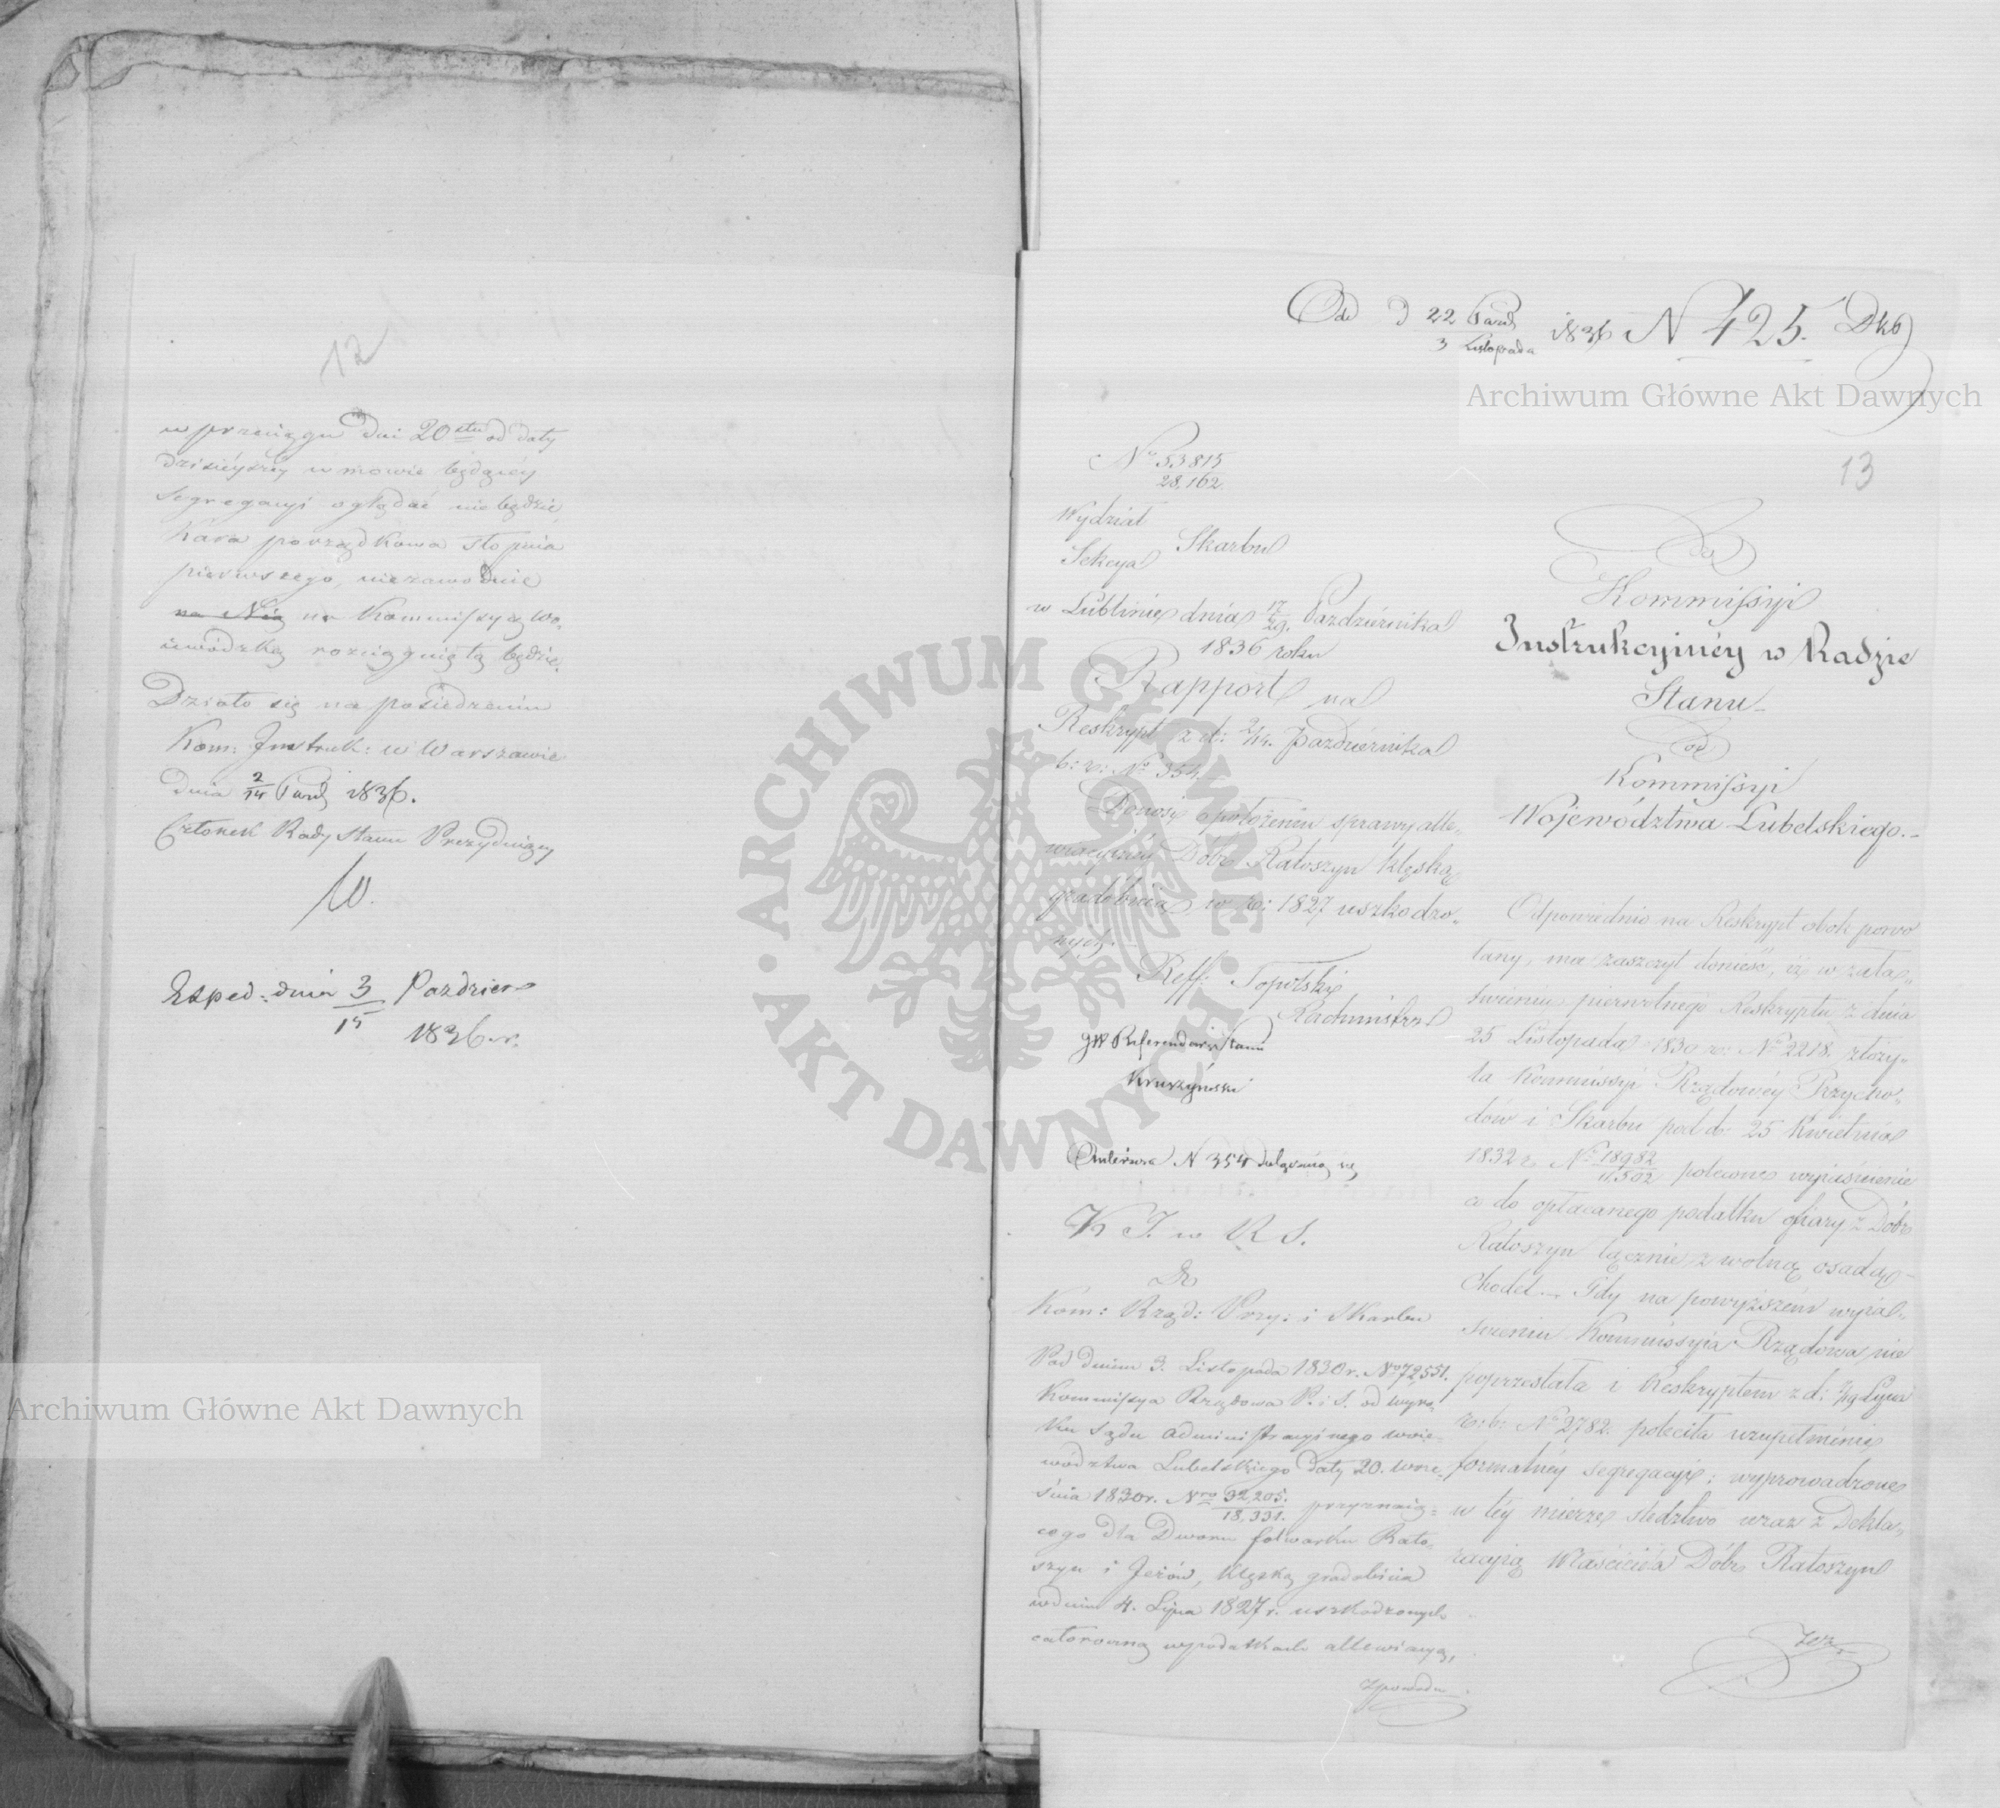 12
w przeciągu dni 20stu od daty
dzisiéyszéy w mowie będącéy
segregacyi oglądać nie będzie,
kara porządkowa stopnia
pierwszego, niezawodnie
na Nią na Kommissyą Wo-
iewódzką rozciągniętą będzie.
Działo się na posiedzeniu
Kom: Instruk: w Warszawie
dnia 2/14 Paźd 1836.
Członek Rady Stanu Prezyduiący
Exped: dnia 3/15 Paździer
1836 r.
Od d 22 Paźd / 3 Listopada 1836 N 425. Dkb
Archiwum Główne Akt Dawnych
13
No 53815
28,162
Wydział
Sekcya Skarbu
w Lublinie dnia 17/29. Października
1836 roku
Rapport na
Reskrypt z d: 2/14. Października
b: r: No 354.
Donosi o położeniu sprawy alle-
wiacyinéj Dóbr Ratoszyn klęską
gradobicia w r: 1827 uszkodzo-
nych.
Reff: Topolski
Radmistrz
JW Referendarz Stanu
Kruszyński
N 354
K I. w R S.
Do
Kom: Rząd: Przy: i Skarbu
Pod dniem 3. Listopada 1830 r. No 72,551.
Kommissya Rządowa P. i S. od wyro-
ku Sądu Administracyinego woie-
wództwa Lubelskiego daty 20. wrze-
śnia 1830 r. Nro 32,205./18,331. przyznaią-
cego dla Dworu folwarku Rato-
szyn i Jeżów, klęską gradobicia
w dniu 4. Lipca 1827 r. uszkodzonych
całoroczną w podatkach allewiacyą,
z powodu
Do
Kommissyi
Instrukcyinéy w Radzie
Stanu
od
Kommissyi
Województwa Lubelskiego.
Odpowiednio na Reskrypt obok powo-
łany, ma zaszczyt donieść, iż w zała-
twieniu pierwotnego Reskryptu z dnia
25 Listopada 1830 r: No 2218. złoży-
ła Kommissyi Rządowéy Przycho-
dów i Skarbu pod d: 25 Kwietnia
1832 r No 18982/11.502 polecone wyjaśnienie
co do opłacanego podatku ofiary z Dóbr
Ratoszyn łącznie z wolną osadą
Chodel. Gdy na powyższém wyja-
śnieniu Kommissyia Rządowa nie
poprzestała i Reskryptem z d:
r: b: No 2782. poleciła uzupełnienie
formalnéy segregacyi; wyprowadzone
w téy mierze śledztwo wraz z Dekla-
racyią Właściciela Dóbr Ratoszyn
ARCHIWUM GŁÓWNE • AKT DAWNYCH •
Archiwum Główne Akt Dawnych